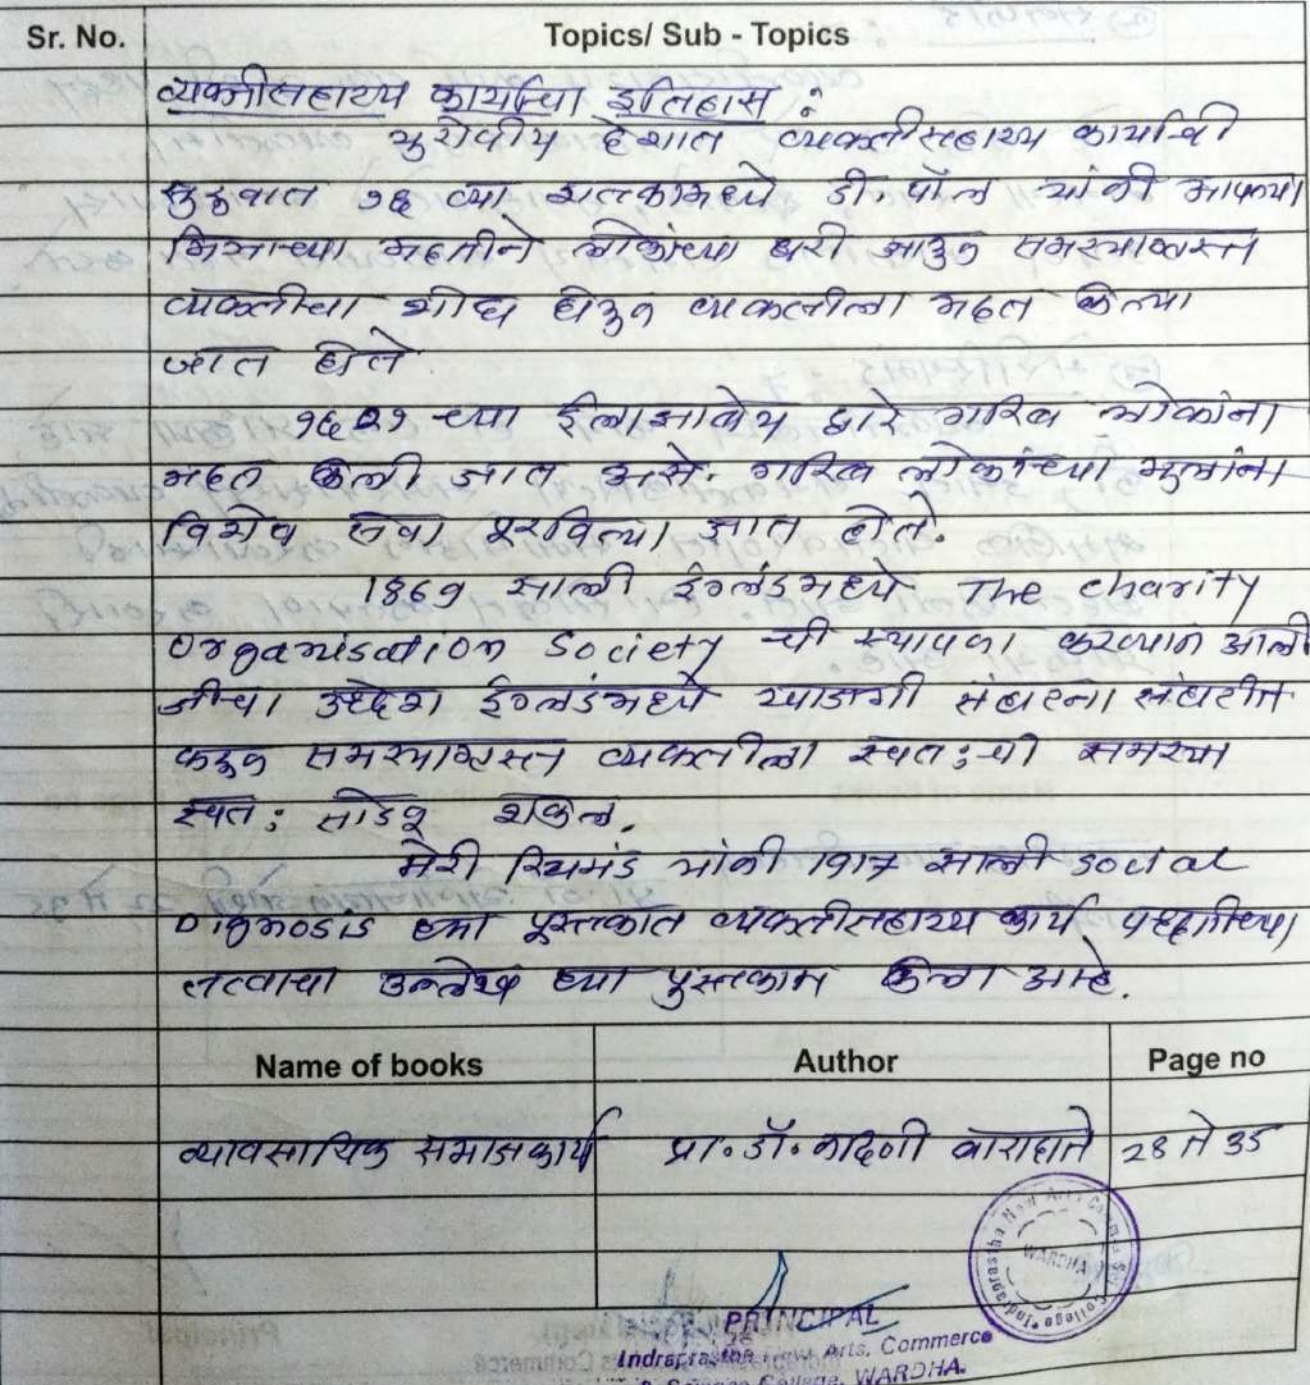 Sr. No. Topics/ Sub - Topics
व्यक्तीसहाय्य कार्याचा इतिहास :
युरोपीय देशात व्यक्तीसहाय्य कार्याची
सुरुवात १६ व्या शतकामध्ये डी. पॉल यांनी आपल्या
मित्राच्या मदतीने लोकांच्या घरी जाऊन समस्याग्रस्त
व्यक्तीचा शोध घेऊन व्यक्तीला मदत केल्या
जात होते
१६०१ च्या ईलाझाबेथ द्वारे गरिब लोकांना
मदत केली जात असे. गरिब लोकांच्या मुलांना
विशेष सेवा पुरविल्या जात होते.
1869 साली इंग्लंडमध्ये The charity
Organisation Society ची स्थापना करण्यात आली
जीचा उद्देश इंग्लंडमध्ये खाजगी संघटना संघटीत
करून समस्याग्रस्त व्यक्तीला स्वत:ची समस्या
स्वत: सोडवू शकेल.
मेरी रिचमंड यांनी 1917 साली social
Dignosis ह्या पुस्तकात व्यक्तीसहाय्य कार्य पध्दतीच्या
तत्वाचा उल्लेख ह्या पुस्तकात केला आहे.
Name of books Author Page no
व्यावसायिक समाजकार्य प्रा. डॉ. नादणी बाराहाते 28 ते 35
Indraprastha New Arts Comme Sci College
WARDHA
PRINCIPAL
Indraprastha New Arts, Commerce
& Science College, WARDHA.